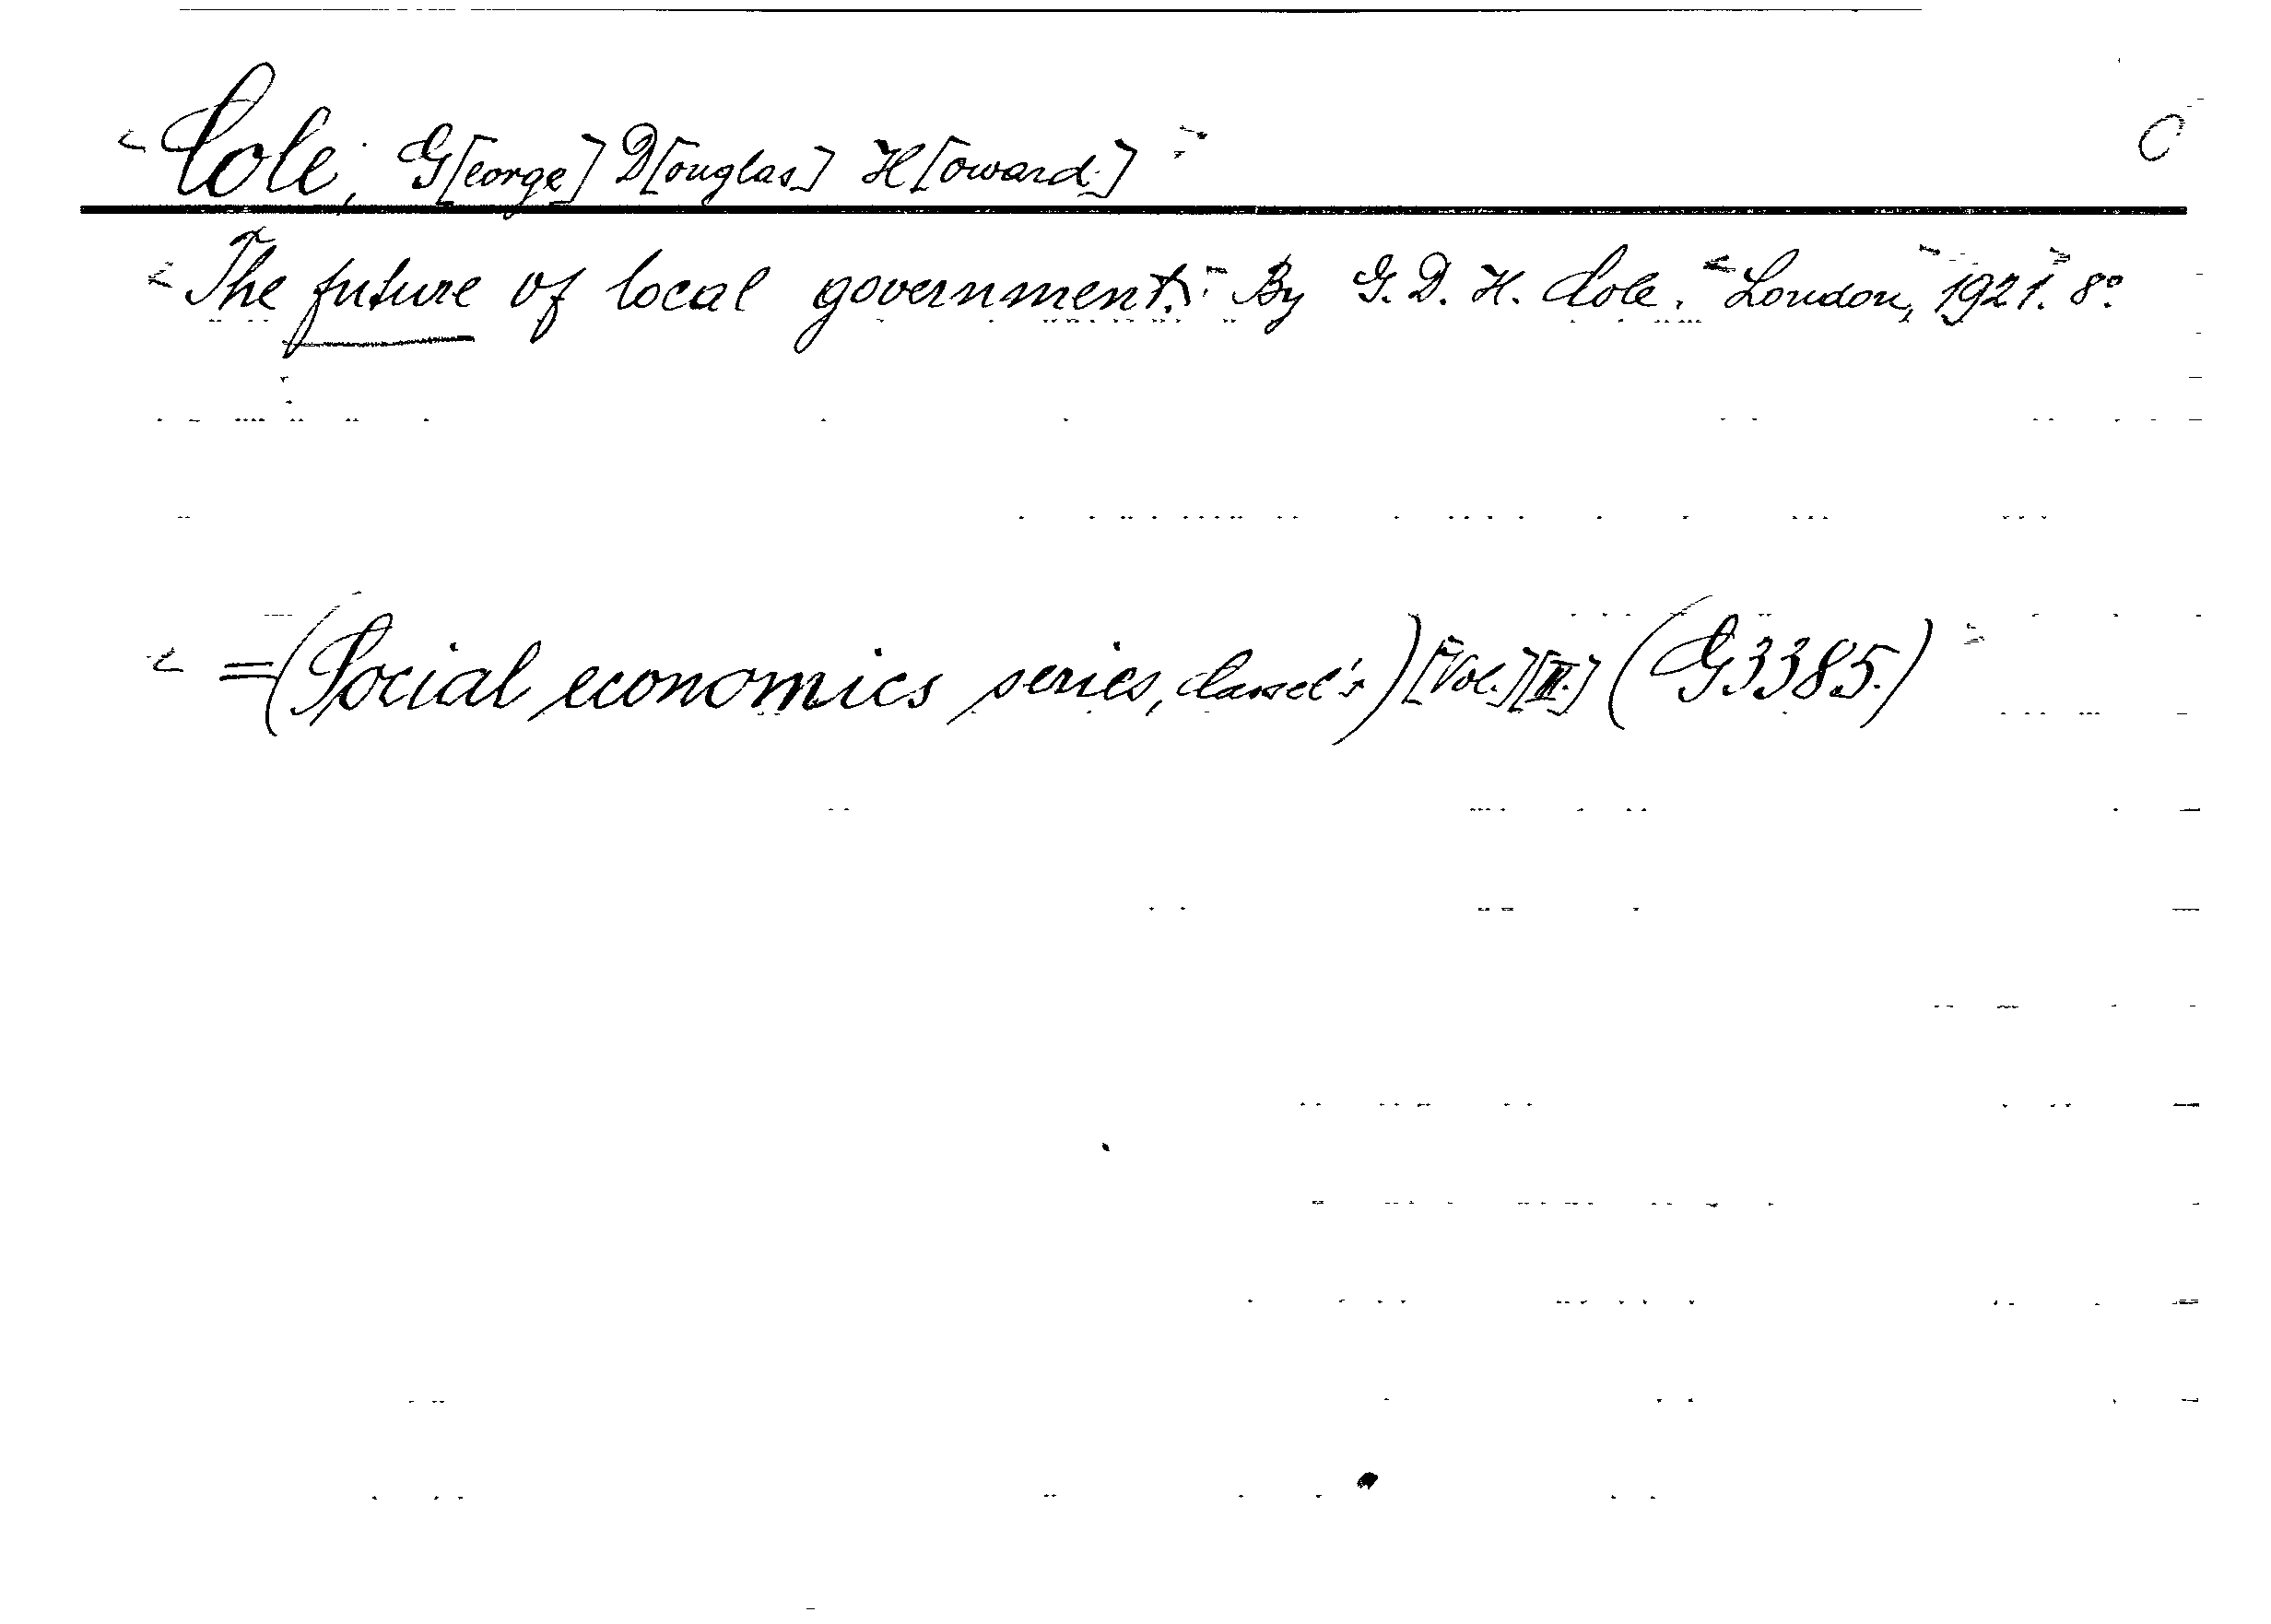 Cole, G[eorge] D[ouglas] H[oward.] C
The future of local government. By G. D. H. Cole. London, 1921. 8º
=(Social economics series, Cassel's) [Vol.][III.] (G3385.)